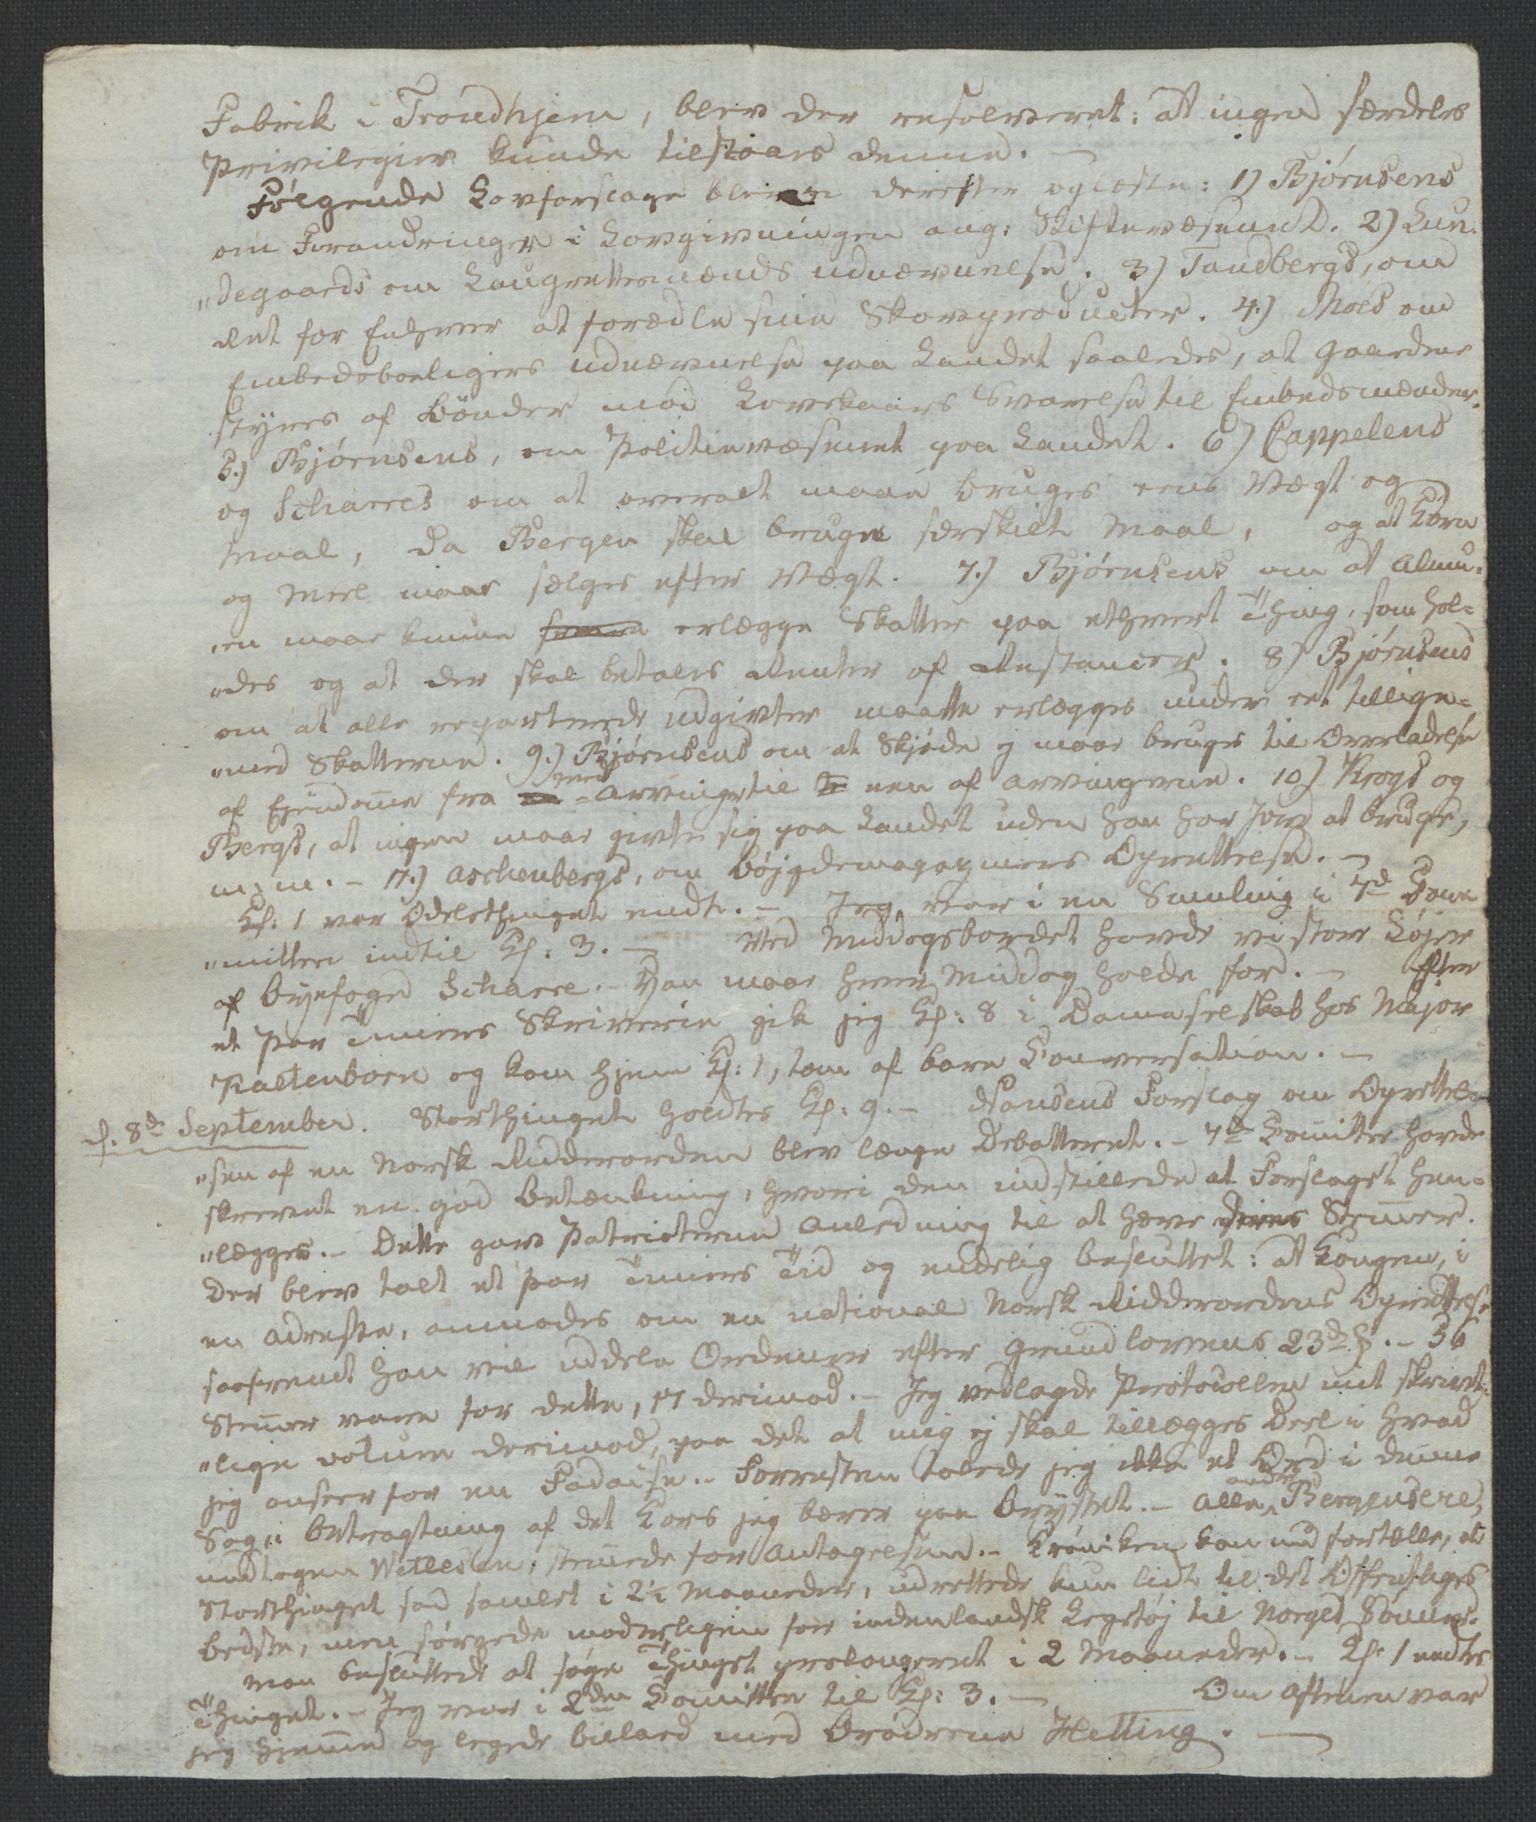 Fabrik i Trondhjem, blev der resolveret: at ingen særdeles
Privilegier kunde tilstaaes denne. —
Følgende Lovforslage bleve derefter oplæste: 1) Bjørnsens
om Forandringer i Lovgivningen ang: Skiftevæsenet. 2) Lun-
„degaards om Laugrettemænds udnævnelse. 3) Tandbergs, om
Ret for Enhver at foredle sine Skovproducter. 4.) Moes om
Embedsboeligers udnævnelse paa Landet saaledes, at Gaardene
styres af Bönder mod Lovskaars Svarelse til Embedsmænder.
5.) Bjørnsens, om Politievæsenet paa Landet. 6) Cappelens
og Scharres om at overalt maae bruges eens Vægt og
Maal, da Bergen skal bruge særskilt Maal, og at Korn
og Meel maae sælges efter Vægt. 7.) Bjørnsens om at Almu-
„en maae kunne erlægge Skatter paa ethvert Thing, som hol-
„des og at der skal betales Renter af Restancer. 8) Bjørnsens
om at alle reparterede udgivter maatte erlægges under eet tillige-
„med Skatterne. 9.) Bjørnsens om at Skjøde ej maae bruges til Overladelse
af Ejendomme fra med-Arvinger til een af Arvingerne. 10) Krogs og
Bergs, at ingen maae givte sig paa Landet uden han har Jord at bruge,
m: m. – 11.) Aschenbergs, om Bøjgdemagaziners Oprettelse. –
Kl: 1 var Odelsthinget endt. – Jeg var i en Samling i 7de Com
„mitteen indtil Kl: 3. — Ved Middagsbordet havde vi stor Løjer
af Byefoged Scharre. – Han maae hver Middag holde for. – Efter
et Par Timers Skriverie gik jeg Kl: 8 i Dameselskab hos Major
Kaltenborn og kom hjem Kl: 1, tom af bare Conversation. –
d. 8de September. Storthinget holdtes Kl: 9. – Hansens Forslag om Oprettel-
„sen af en Norsk Ridderorden blev længe Debatteret. – 7de Comitee havde
skrevet en god Betænkning, hvori den indstillede at Forslaget hen-
„lægges. – Dette gav Patrioterne Anledning til at hæve deres Stemmer.
Der blev talt et par Timers Tid og endelig besluttet: at Kongen, i
en Adresse, anmodes om en national Norsk Ridderordens Oprettelse
saafremt han vil uddele Ordener efter Grundlovens 23de §. – 56
Stemmer vare for dette, 17 derimod. – Jeg vedlagde Protocollen mit skrivt-
„lige votum derimod, paa det at mig ej skal tillægges Deel i hvad
jeg anseer for en Fadaise. – Forresten talede jeg ikke et Ord i denne
Sag, i Betragtning af det Kors jeg bærer paa Brystet. – Alle andre Bergensere,
undtagen Wetlesen, stemmede for Antagelsen. – Krøniken kan nu fortælle, at
Storthinget sad samlet i 2½ Maaneder, udrettede kun lidt til det Offentliges
bedste, men sørgede moderligen for indenlandsk Legetøj til Norges Sønner.
Man besluttede at søge Thinget prolongeret i 2 Maaneder. – Kl: 1 endtes
Thinget. – Jeg var i 2den Comitee til Kl: 3. – Om Aftenen var
jeg hjemme og legede billard med Brødrene Hetting. —